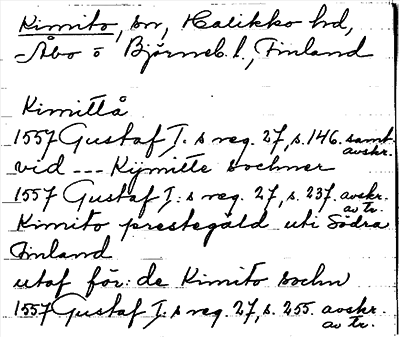 Kimito, sn, Halikko hd,
Åbo o Björneb. l., Finland
Kimittå
1557 Gustaf I: s reg. 27, s. 146. samt.
avskr.
vid --- Kijmitte sochner
1557 Gustaf I: s reg. 27, s. 237. avskr.
av tr.
Kimito prestegäld uti Södra
Finland
utaf för: de Kimito sochn
1557 Gustaf I: s reg. 27, s. 255. avskr.
av tr.